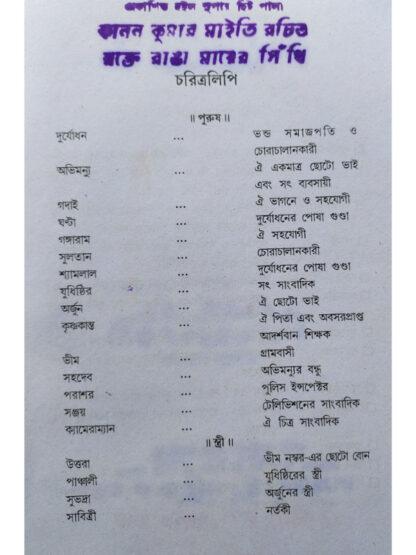 প্রকাশিত হইল সুপার হিট পালা
কানন কুমার মাইতি রচিত
রক্তে রাঙা মায়ের সিঁথি
চরিত্রলিপি
॥ পুরুষ ॥
দুর্যোধন ... ভন্ড সমাজপতি ও
চোরাচালানকারী
অভিমন্যু ... ঐ একমাত্র ছোটো ভাই
এবং সৎ ব্যবসায়ী
গদাই ... ঐ ভাগনে ও সহযোগী
ঘন্টা ... দুর্যোধনের পোষা গুণ্ডা
গঙ্গারাম ... ঐ সহযোগী
সুলতান ... চোরাচালানকারী
শ্যামলাল ... দুর্যোধনের পোষা গুণ্ডা
যুধিষ্ঠির ... সৎ সাংবাদিক
অর্জুন ... ঐ ছোটো ভাই
কৃষ্ণকান্ত ... ঐ পিতা এবং অবসরপ্রাপ্ত
আদর্শবান শিক্ষক
ভীম ... গ্রামবাসী
সহদেব ... অভিমন্যুর বন্ধু
পরাশর ... পুলিস ইন্সপেক্টর
সঞ্জয় ... টেলিভিশনের সাংবাদিক
ক্যামেরাম্যান ... ঐ চিত্র সাংবাদিক
॥ স্ত্রী ॥
উত্তরা ... ভীম নস্কর-এর ছোটো বোন
পাঞ্চালী ... যুধিষ্ঠিরের স্ত্রী
সুভদ্রা ... অর্জুনের স্ত্রী
সাবিত্রী ... নর্তকী